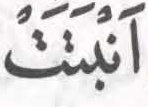 اَنْبَتَتْ